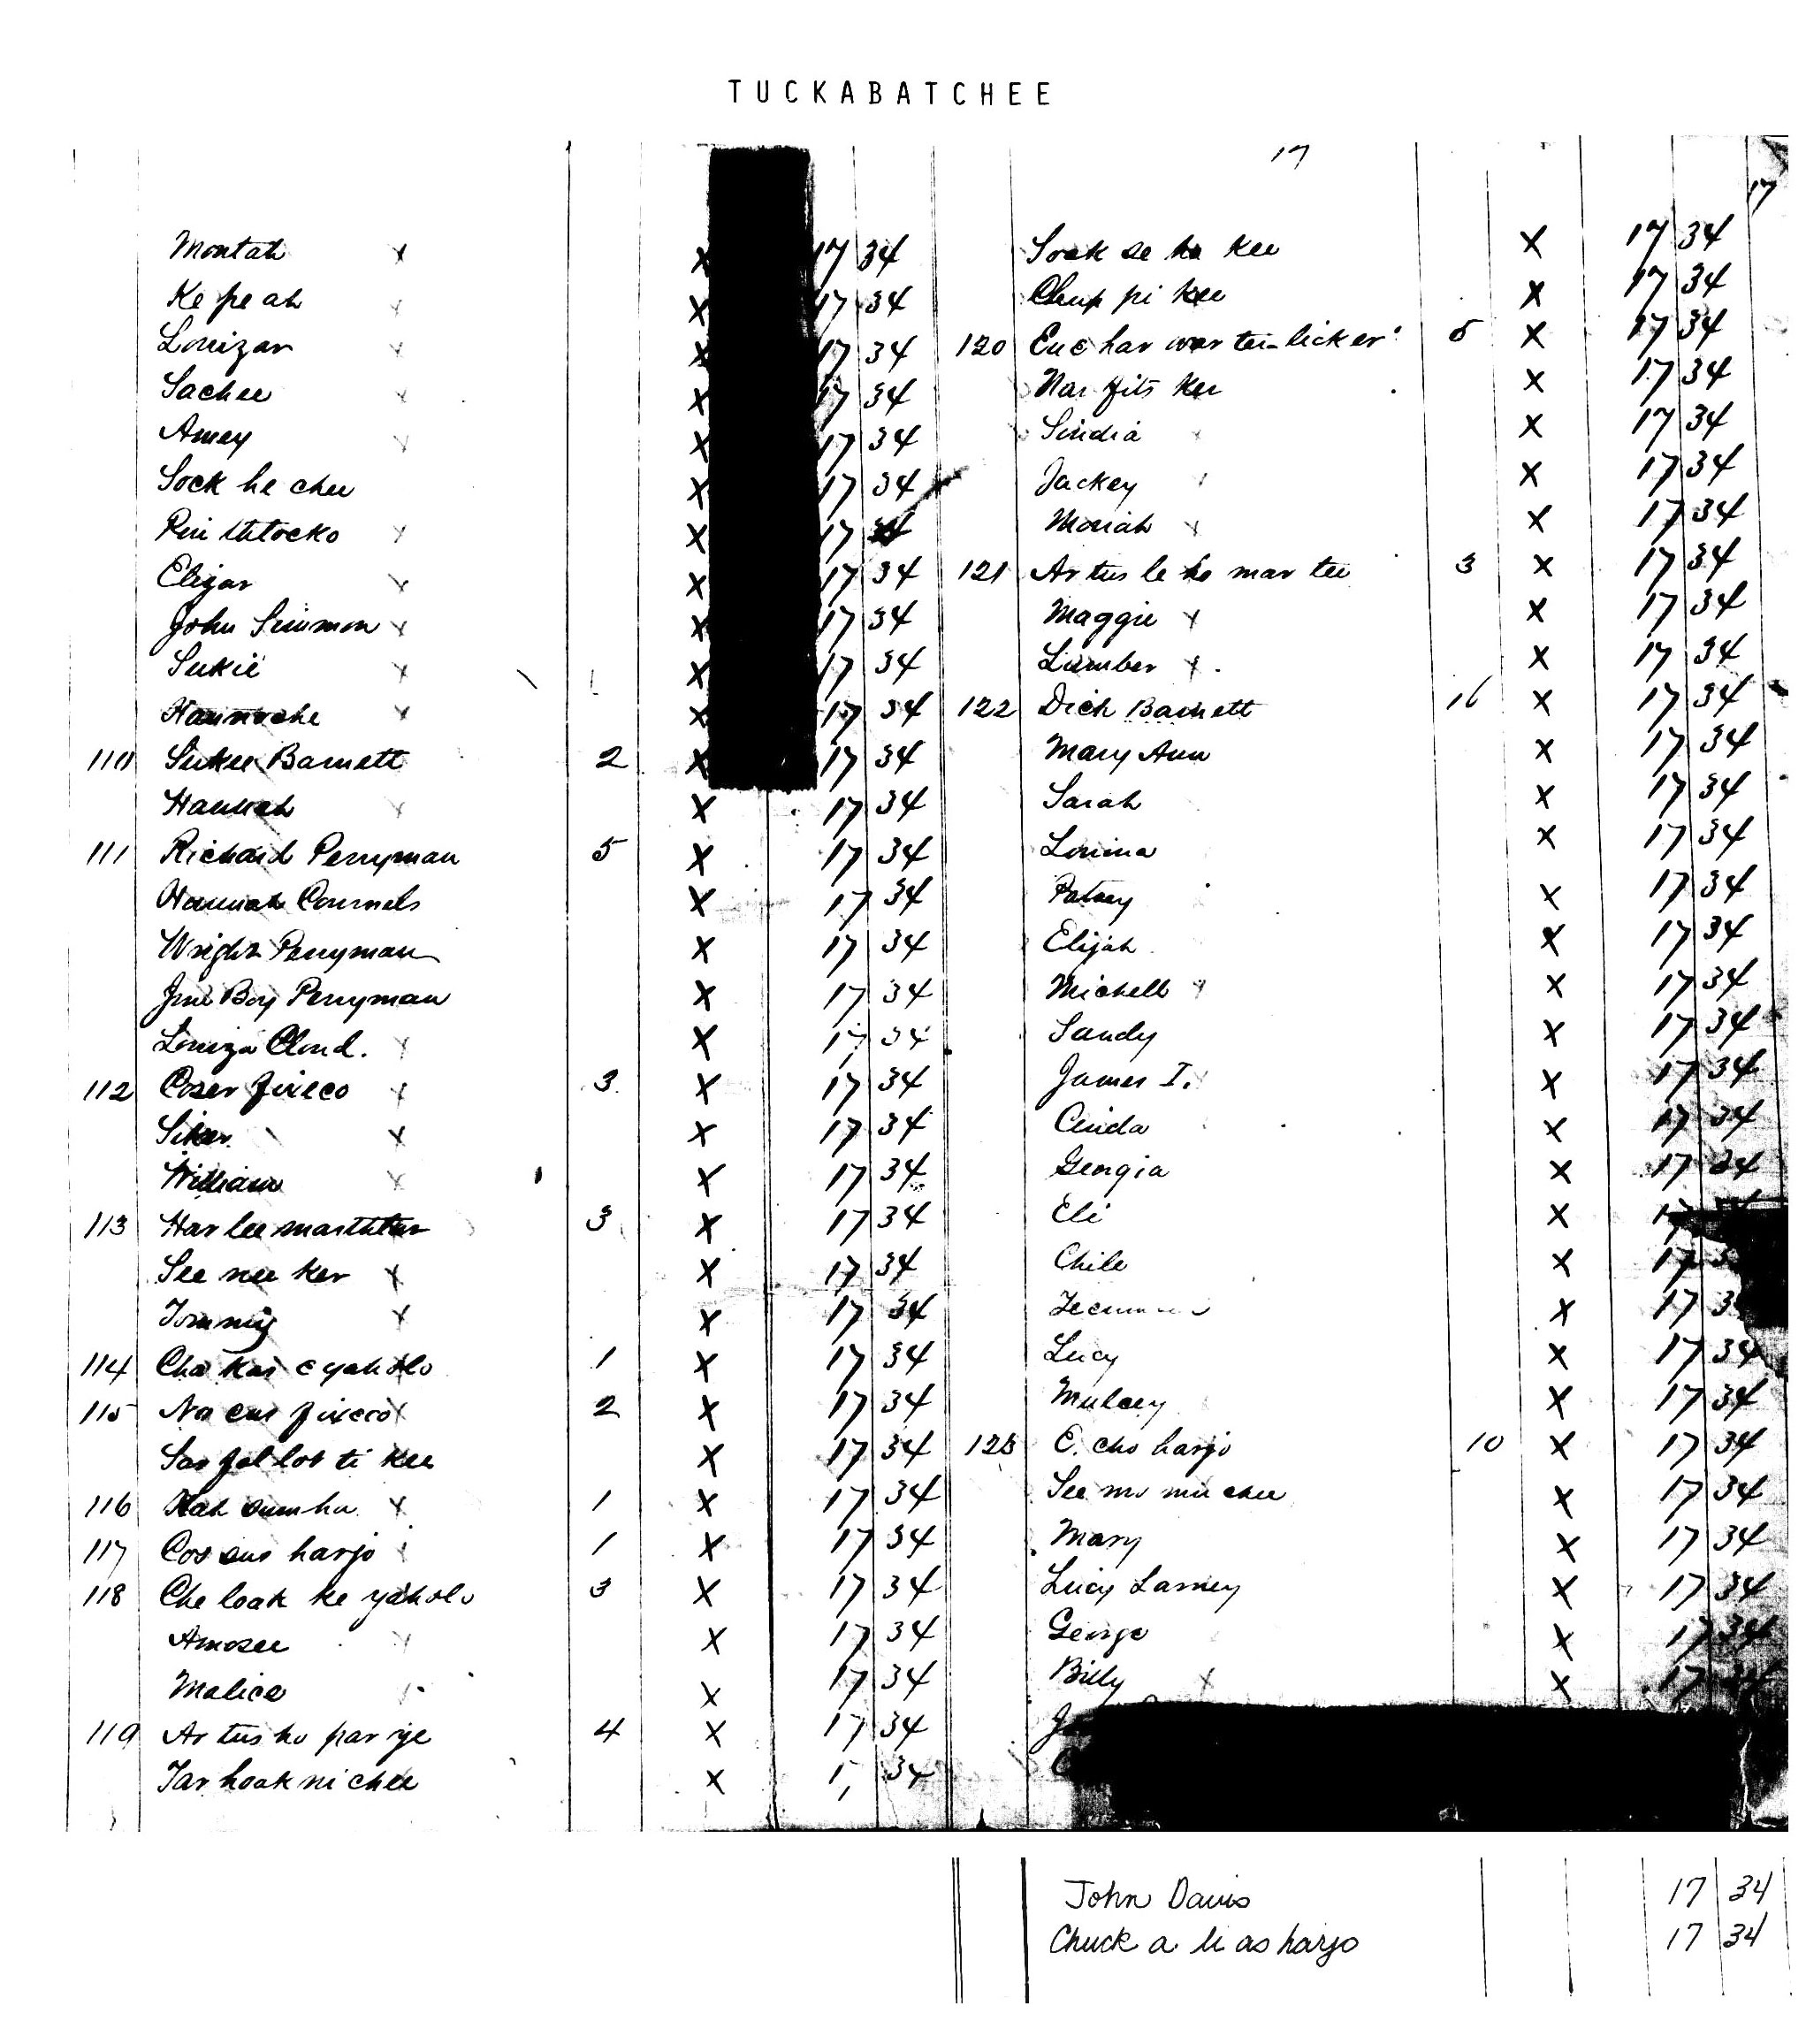 TUCKABATCHEE
17
17
Montah x x 17 34
Ke pe ah x x 17 34
Louizar x x 17 34
Sachee x x 17 34
Amey x x 17 34
Sock he chee x 17 34
Pin thlocko x x 17 34
Elizar x x 17 34
John Simmon x x 17 34
Sukie x x 17 34
Hannoche x x 17 34
110 Sukee Barnett 2 x 17 34
Hannah x x 17 34
111 Richard Perryman 5 x 17 34
Hannah Cournels x 17 34
Wright Perryman x 17 34
Jim Boy Perryman x 17 34
Louiza Cloud. x x 17 34
112 Coser fixeco x 3 x 17 34
x x 17 34
William x x 17 34
113 Har lee marthlar 3 x 17 34
See nee ker x x 17 34
Tommy x x 17 34
114 Cha kas e yaholo 1 x 17 34
115 No cus fixeco x 2 x 17 34
Sar fol lot ti kee x 17 34
116 Kah sum ha x 1 x 17 34
117 Cos sus harjo 1 x 17 34
118 Che loak ke yaholo 3 x 17 34
Amosee x x 17 34
Malice x 17 34
119 Ar tus ho par ye 4 x 17 34
Tar hoak ni chee x 17 34
Soak se ho kee x 17 34
Chup pi kee x 17 34
120 Euc har war tee-licker 5 x 17 34
Nar fits kee x 17 34
Sindia x x 17 34
Jackey x 17 34
Moriah x x 17 34
121 Ar tus le ho mar tee 3 x 17 34
Maggie x x 17 34
Lumber x . x 17 34
122 Dick Barnett 16 x 17 34
Mary Ann x 17 34
Sarah x 17 34
Lovina x 17 34
Patsey x 17 34
Elijah x 17 34
Michell x x 17 34
Sandy x 17 34
James I. x 17 34
Cinda x 17 34
Georgia x 17 34
Eli x 17
Chile x 17 3
x 17 3
Lucy x 17 34
Mulcey x 17 34
123 E. cho harjo 10 x 17 34
See mo mi chee x 17 34
Mary x 17 34
Lucy Larney x 17 34
George x 17 34
Billy x x 17 34
John Davis 17 34
Chuck a li as harjo 17 34